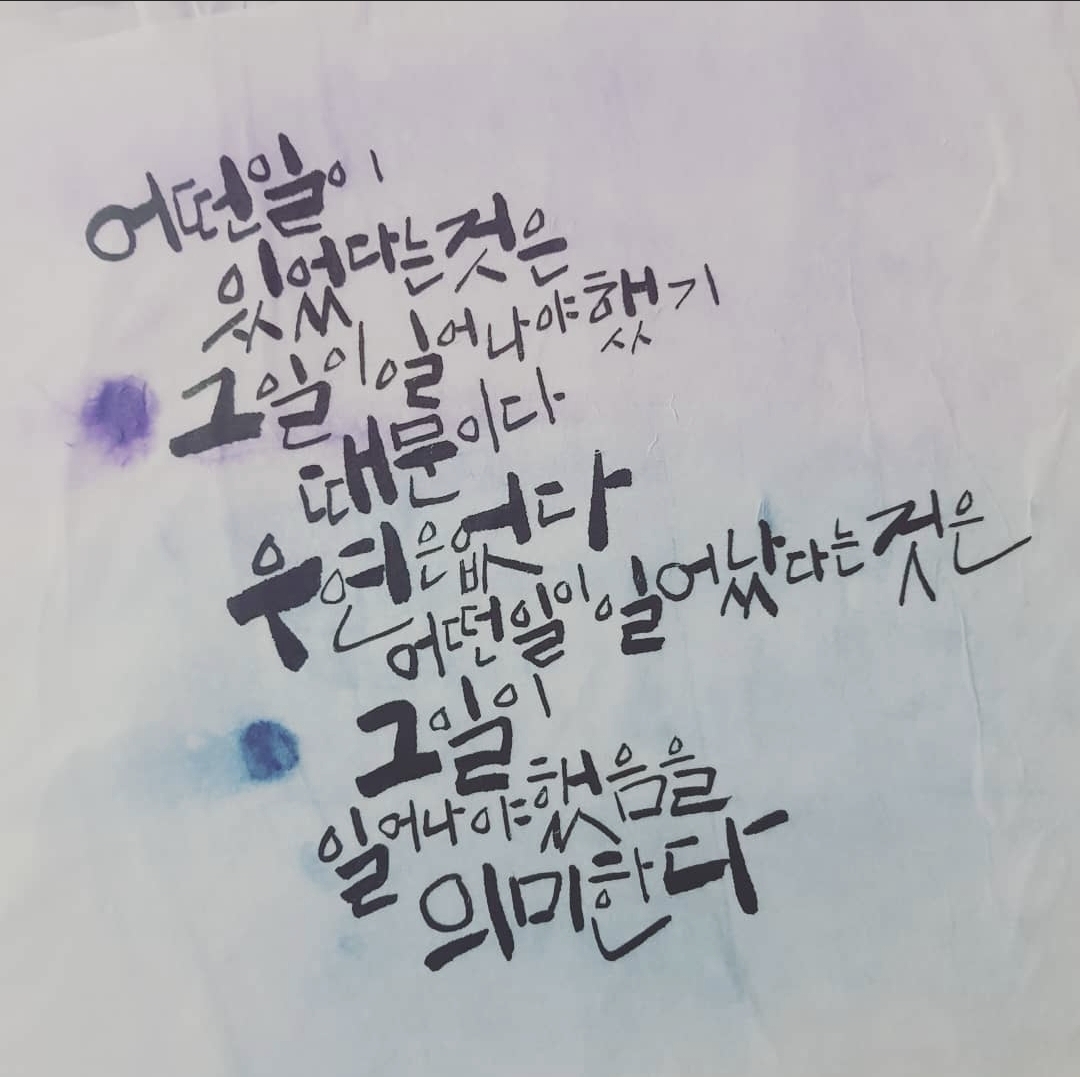 어떤일이
있었다는것은
그일이일어나야했기
때문이다
우연은없다
어떤일이일어났다는것은
그일이
일어나야했음을
의미한다